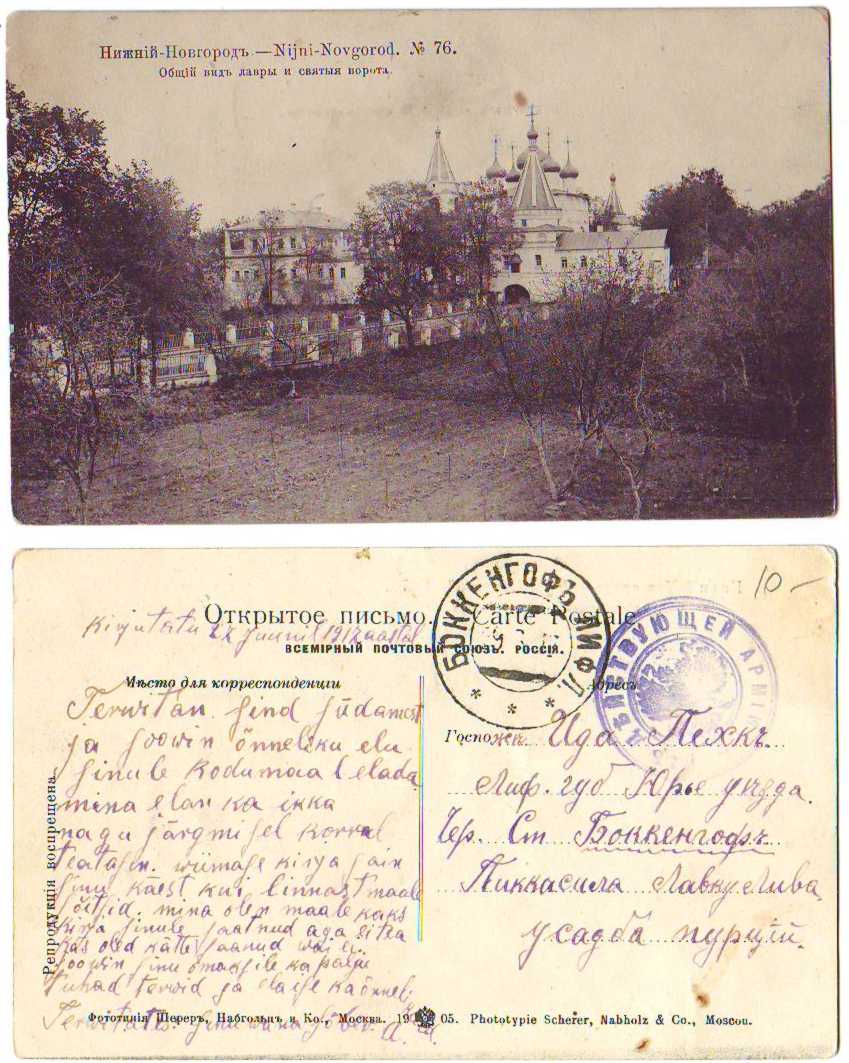 Нижній-Новгородъ — Nijni-Novgorod. № 76.
Общій видъ лавры и святыя ворота.
Открытое письмо. Carte Postale.
Kirjutatu 27 Juunil 1917 aastal
ВСЕМІРНЫЙ ПОЧТОВЫЙ СОЮЗЪ. РОССІЯ.
БОККЕНГОФЪ ЛИФЛ.
ДѢЙСТВУЮЩЕЙ АРМІ
10 -
Мѣсто для корреспонденціи
Terwitan sind südamest
ja soowin õnneliku elu
sinule kodumaal elada
mina elan ka ikka
nagu järgmisel korral
teatasin. wiimase kirja sain
sinu käest kui linnast maale
sõitsid. mina olen maale kaks
kirja sinule saatnud aga ei tea
kas oled kätte saanud wõi ei
soowin sinu omastele ka palju
tuhad terwid ja elage ka õnnel.
Terwitates sinu
Адресъ
Госпожѣ. Ида Пехкъ.
Лиф. губ Юрье уѣзда.
Чер. Ст Боккенгофъ
Пиккасила Лавку Лива
усадба
Репродукція воспрещена.
Фототипія Шереръ, Набгольцъ и Ко., Москва. 1905. Phototypie Scherer, Nabholz & Co., Moscou.